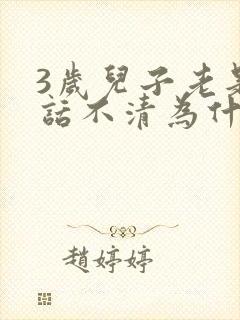 3歲兒子老是
話不清為什
趙婷婷